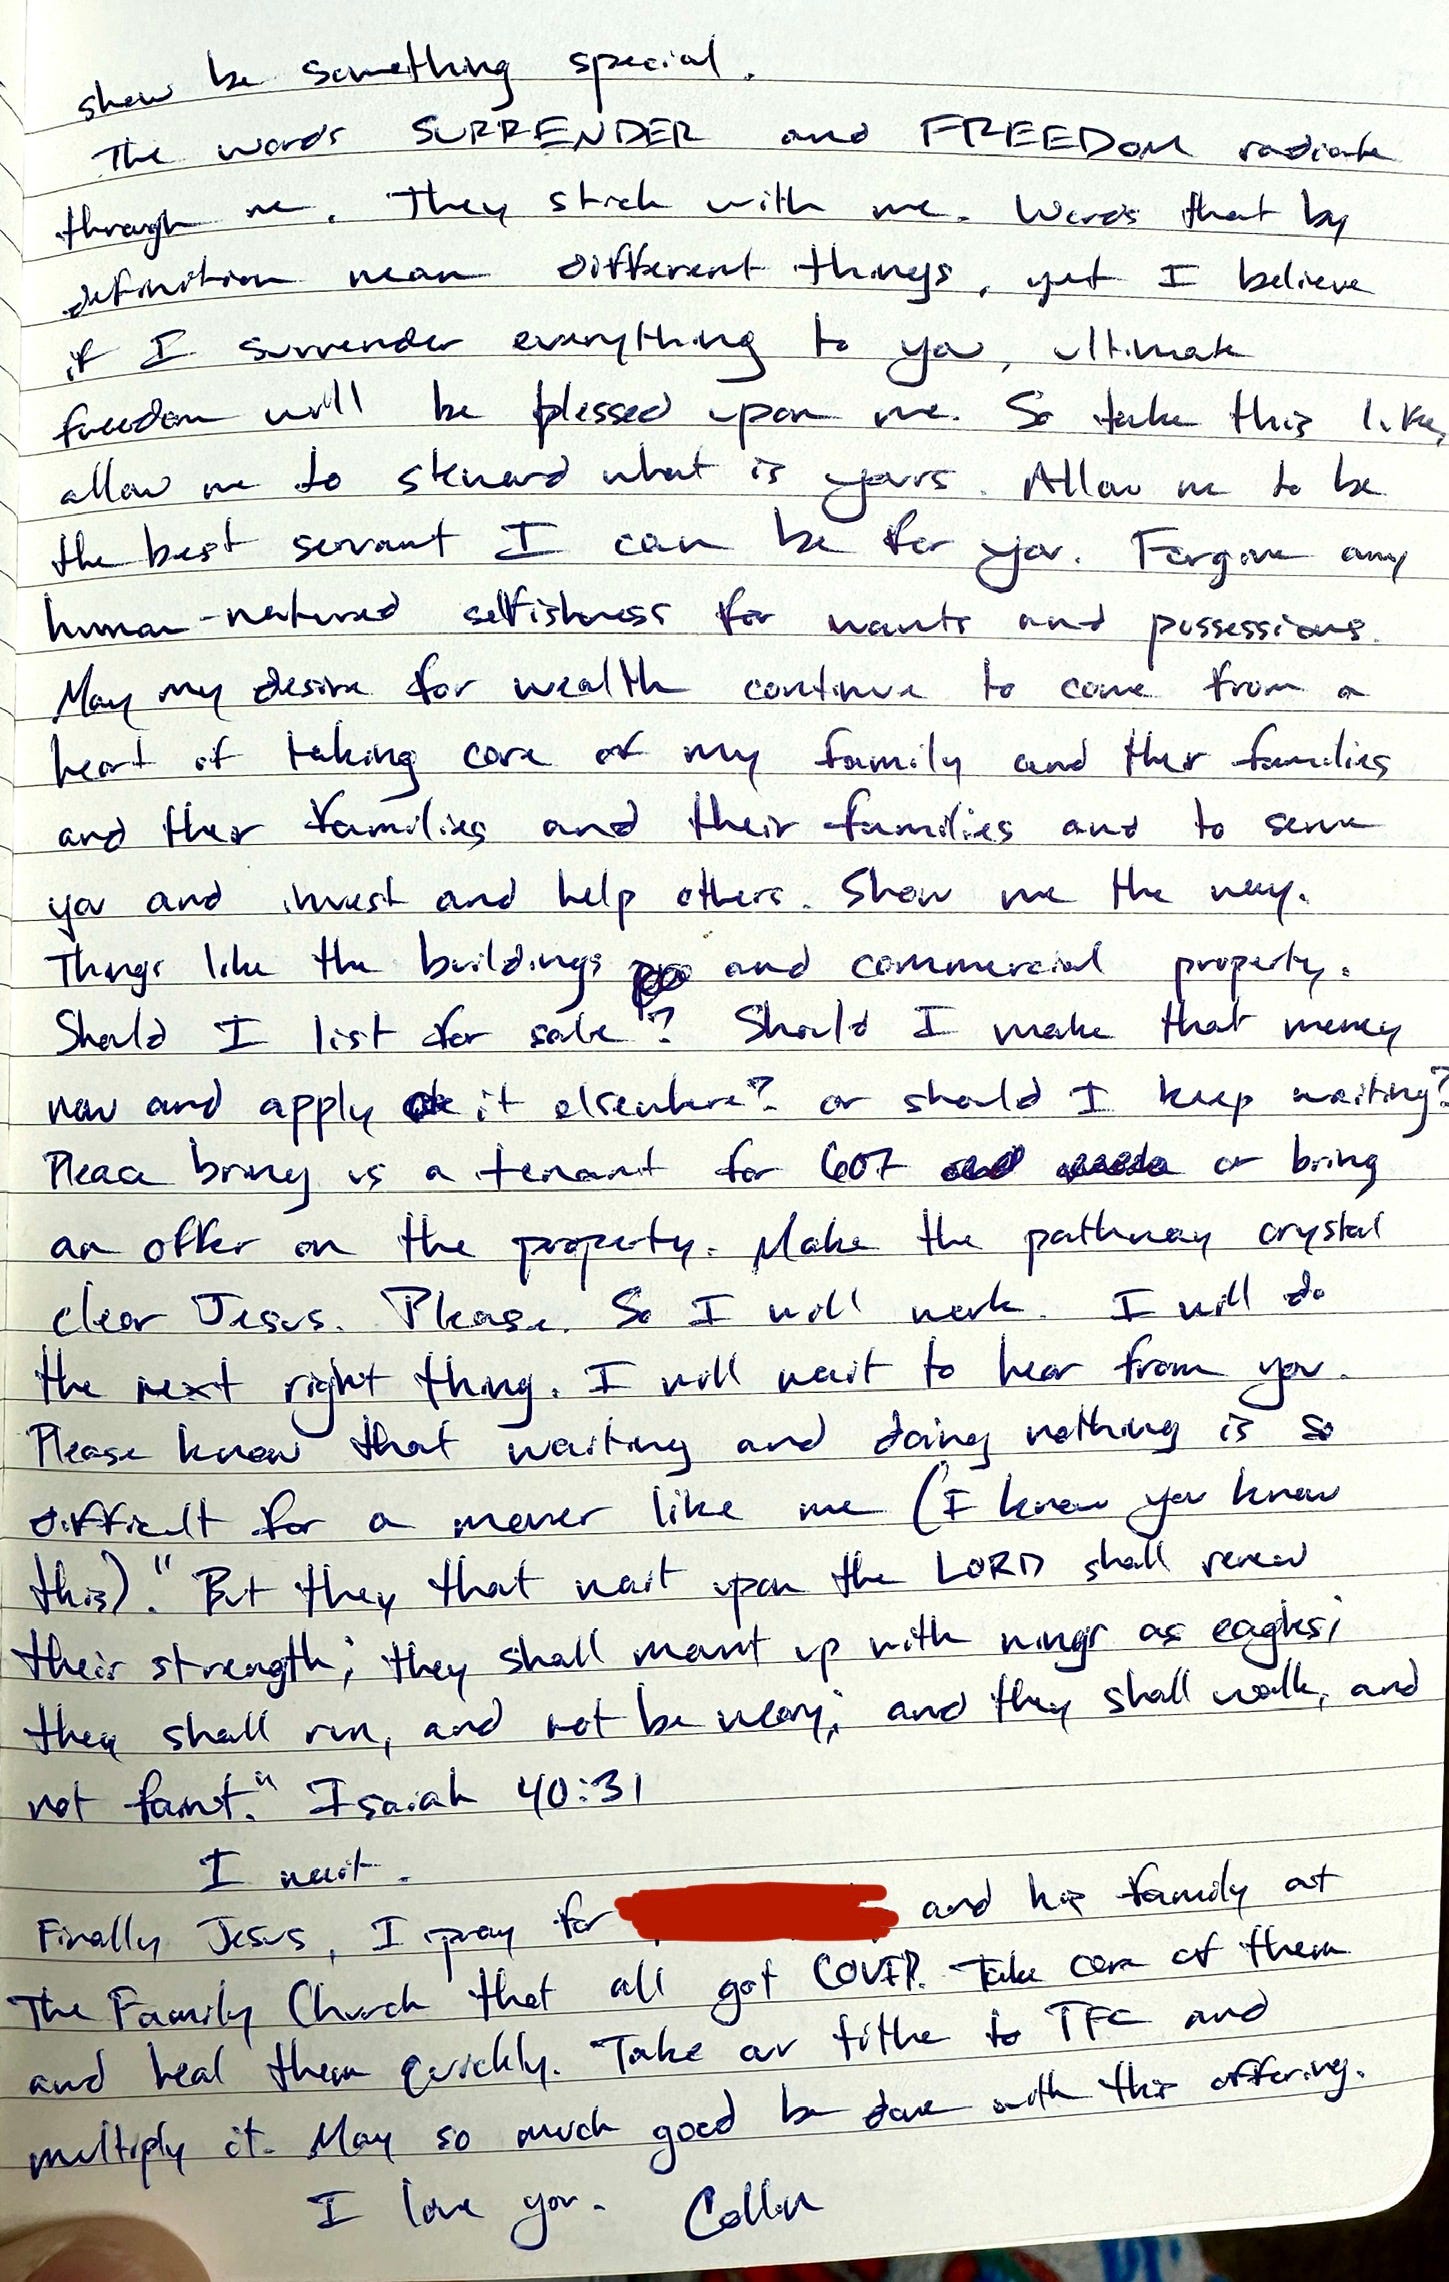 show be something special.
The words SURRENDER and FREEDOM radiate
through me. They stick with me. Words that by
definition mean different things, yet I believe
if I surrender everything to you, ultimate
freedom will be blessed upon me. So take this life,
allow me to steward what is yours. Allow me to be
the best servant I can be for you. Forgive any
human-natured selfishness for wants and possessions.
May my desire for wealth continue to come from a
heart of taking care of my family and their families
and their families and their families and to serve
you and invest and help others. Show me the way.
Things like the buildings and commercial property.
Should I list for sale? Should I make that money
now and apply it elsewhere? or should I keep waiting?
Please bring us a tenant for 607 or bring
an offer on the property. Make the pathway crystal
clear Jesus. Please. So I will work. I will do
the next right thing. I will wait to hear from you.
Please know that waiting and doing nothing is so
difficult for a mover like me (I know you know
this). "But they that wait upon the LORD shall renew
their strength; they shall mount up with wings as eagles;
they shall run, and not be weary; and they shall walk, and
not faint." Isaiah 40:31
I wait.
Finally Jesus, I pray for and his family at
The Family Church that all got COVID. Take care of them
and heal them quickly. Take our tithe to TFC and
multiply it. May so much good be done with this offering.
I love you. Collin